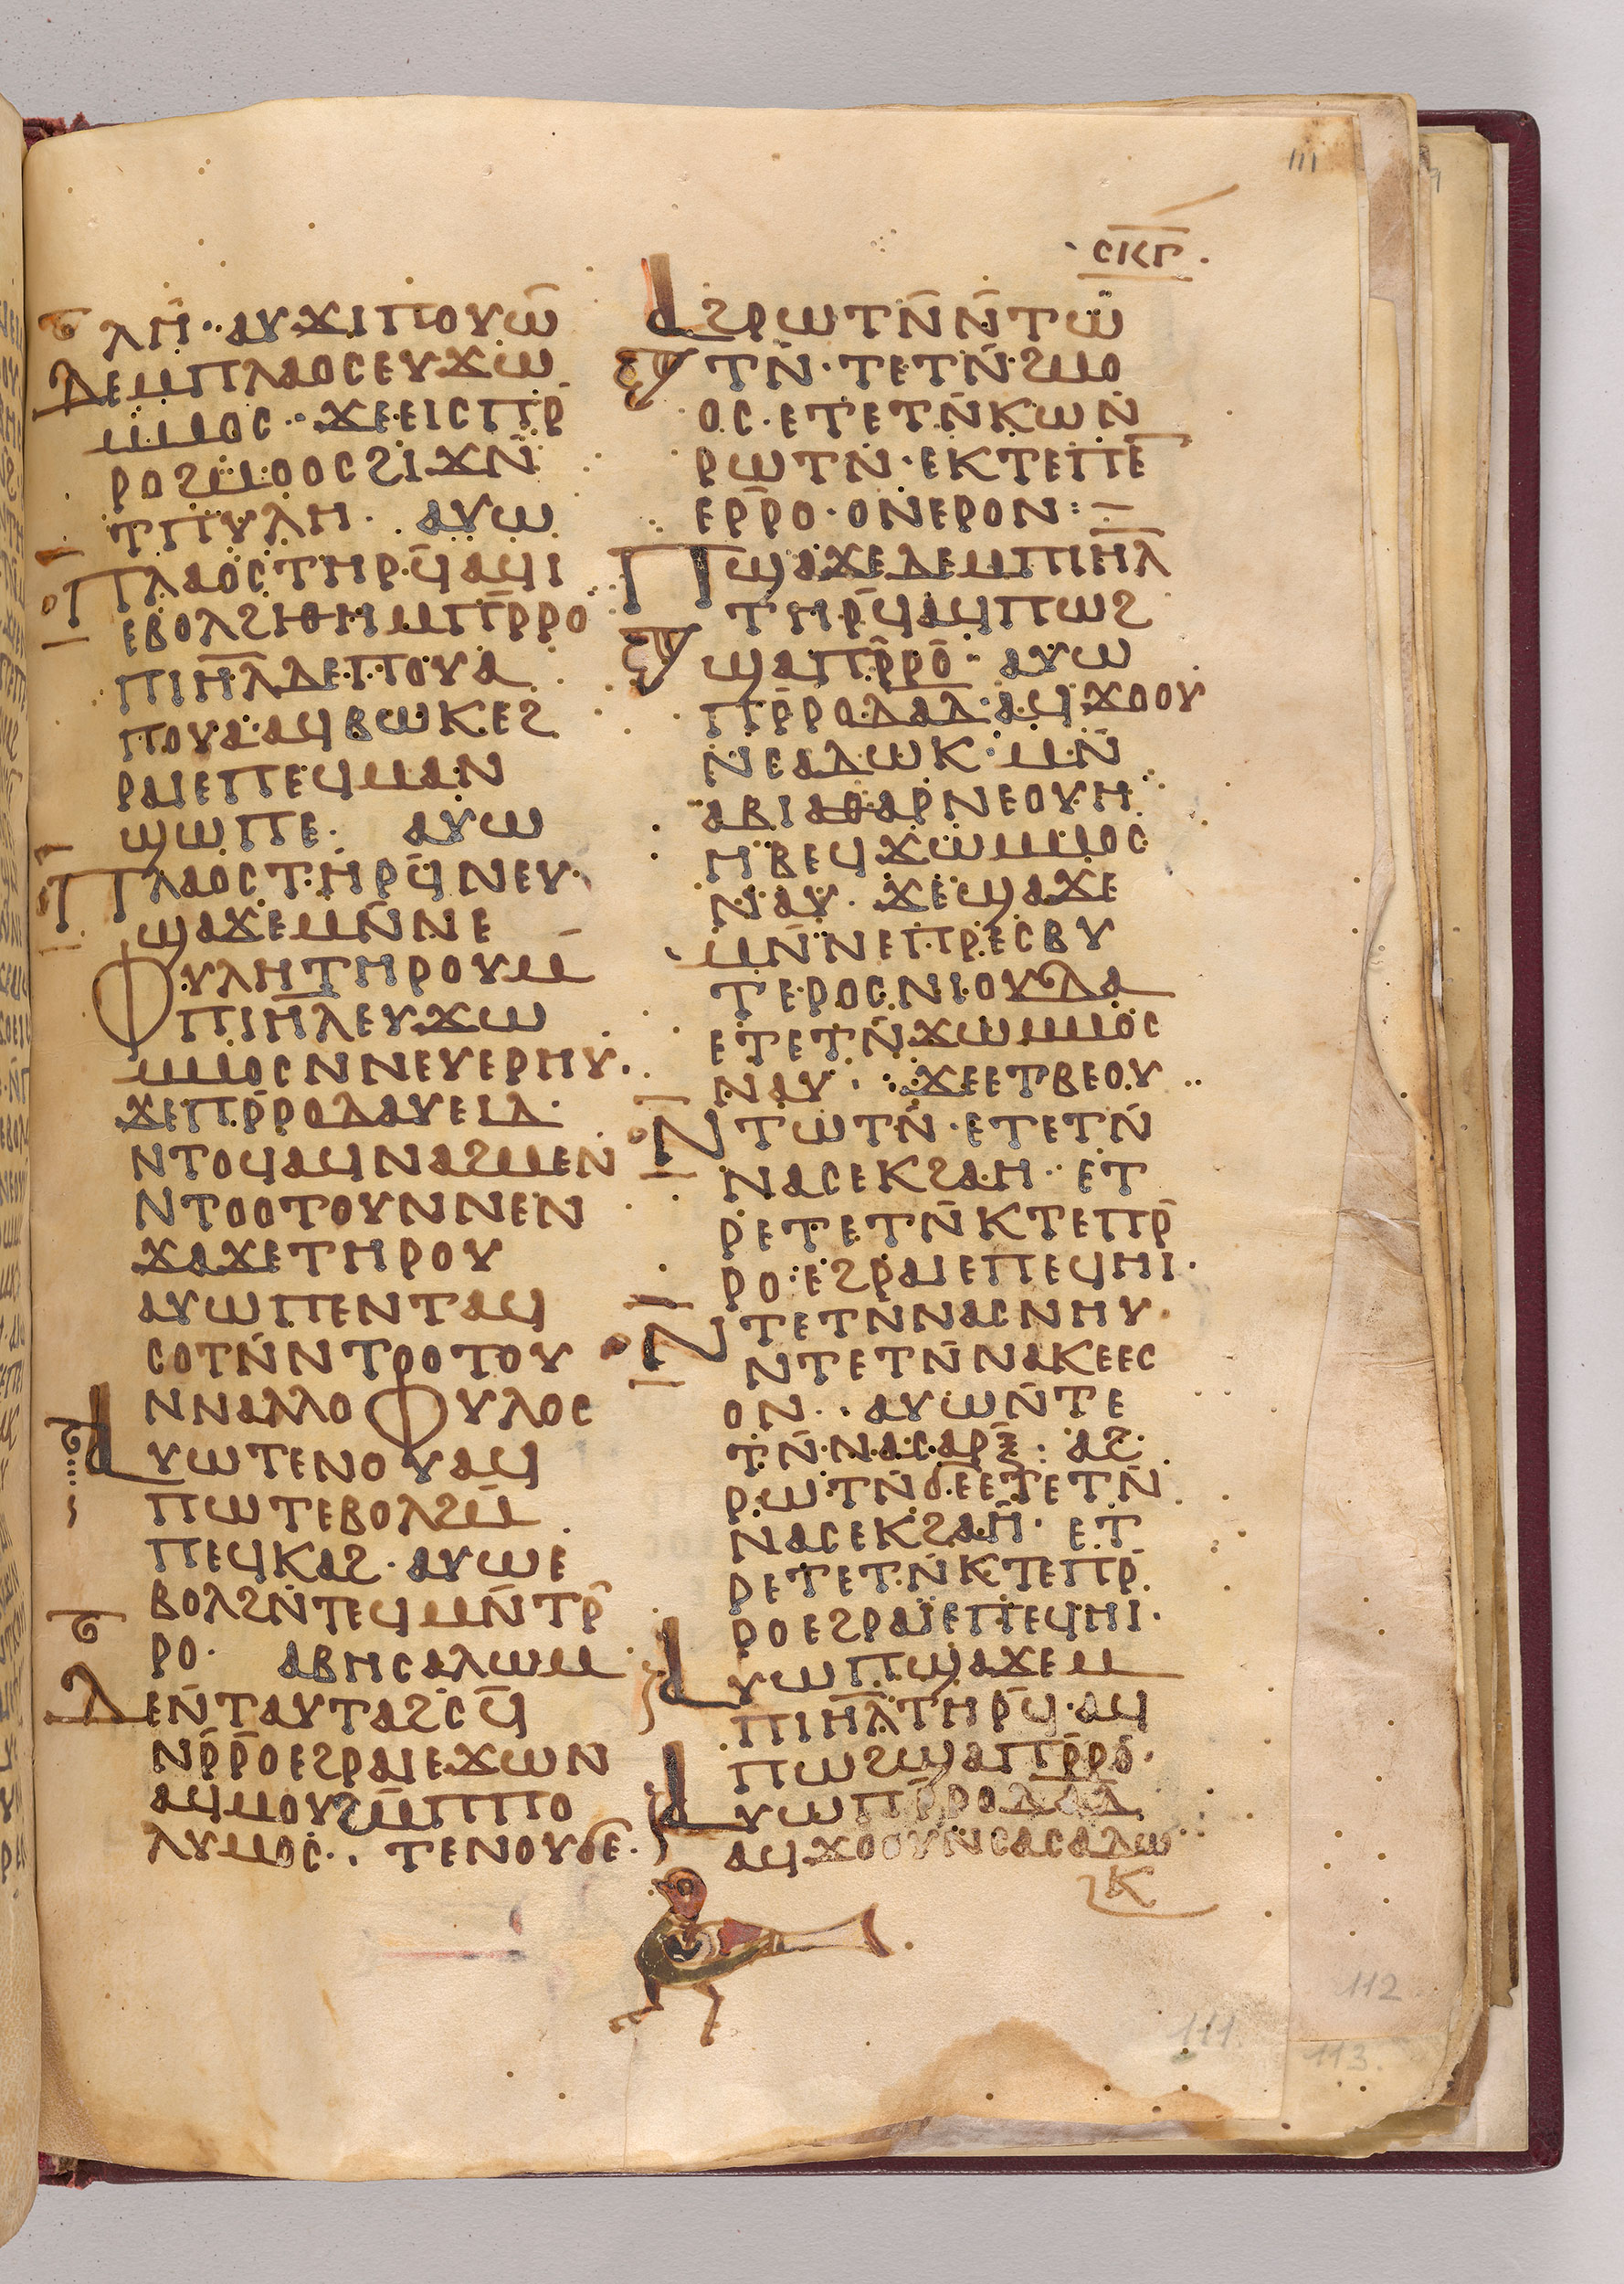 111
ⲥⲕⲅ
ⲗⲏ̄· ⲁⲩϫⲓⲡⲟⲩⲱ̄
ⲇⲉⲙⲡⲗⲁⲟⲥⲉⲩϫⲱ
ⲙⲙⲟⲥ· ϫⲉⲉⲓⲥⲡⲣ̄
ⲣⲟϩⲙⲟⲟⲥϩⲓϫⲛ̄
ⲧⲡⲩⲗⲏ· ⲁⲩⲱ
ⲡⲗⲁⲟⲥⲧⲏⲣϥ̄ⲁϥⲓ
ⲉⲃⲟⲗϩⲓⲑⲏⲙⲡⲣ̄ⲣⲟ
ⲡⲓⲏ̄ⲗ̄ⲇⲉⲡⲟⲩⲁ
ⲡⲟⲩⲁ·ⲁϥⲃⲱⲕⲉϩ
ⲣⲁⲓⲉⲡⲉϥⲙⲁⲛ
ϣⲱⲡⲉ· ⲁⲩⲱ
ⲡⲗⲁⲟⲥⲧⲏⲣϥ̄ⲛⲉⲩ
ϣⲁϫⲉⲙⲛ̄ⲛⲉ
ⲫⲩⲗⲏⲧⲏⲣⲟⲩⲙ̄
ⲡⲓⲏ̄ⲗ̄ⲉⲩϫⲱ
ⲙⲙⲟⲥⲛⲛⲉⲩⲉⲣⲏⲩ·
ϫⲉⲡⲣ̄ⲣⲟⲇⲁⲩⲉⲓⲇ·
ⲛⲧⲟϥⲁϥⲛⲁϩⲙⲉⲛ
ⲛⲧⲟⲟⲧⲟⲩⲛⲛⲉⲛ
ϫⲁϫⲉⲧⲏⲣⲟⲩ
ⲁⲩⲱⲡⲉⲛⲧⲁϥ
ⲥⲟⲧⲛ̄ⲛⲧⲟⲟⲧⲟⲩ
ⲛⲛⲁⲗⲗⲟⲫⲩⲗⲟⲥ
ⲁⲩⲱⲧⲉⲛⲟⲩⲁϥ
ⲡⲱⲧⲉⲃⲟⲗϩⲙ̄
ⲡⲉϥⲕⲁϩ·ⲁⲩⲱⲉ
ⲃⲟⲗϩⲛ̄ⲧⲉϥⲙⲛ̄ⲧⲣ̄
ⲣⲟ· ⲁⲃⲏⲥⲁⲗⲱⲙ
ⲇⲉⲛ̄ⲧⲁⲩⲧⲁϩⲥϥ̄
ⲛⲣ̄ⲣⲟⲉϩⲣⲁⲓⲉϫⲱⲛ
ⲁϥⲙⲟⲩϩⲙ̄ⲡⲡⲟ
ⲗⲩⲙⲟⲥ·· ⲧⲉⲛⲟⲩϭⲉ·
ⲁϩⲣⲱⲧⲛ̄ⲛ̄ⲧⲱ
ⲧⲛ̄·ⲧⲉⲧⲛ̄ϩⲙⲟ
ⲟⲥ·ⲉⲧⲉⲧⲛ̄ⲕⲱⲛ̄
ⲣⲱⲧⲛ̄·ⲉⲕⲧⲉⲡⲉ̄
ⲉⲣ̄ⲣⲟ·ⲟⲛⲉⲣⲟⲛ:—
ⲡϣⲁϫⲉⲇⲉⲙⲡⲓⲏ̄ⲗ̄
ⲧⲏⲣϥ̄ⲁϥⲡⲱϩ
ϣⲁⲡⲣ̄ⲣⲟ· ⲁⲩⲱ
ⲡⲣ̄ⲣⲟⲇ̄ⲁ̄ⲇ̄·ⲁϥϫⲟⲟⲩ
ⲛⲉⲁⲇⲱⲕ·ⲙⲛ̄
ⲁⲃⲓⲁⲑⲁⲣⲛⲉⲟⲩⲏ
ⲏⲃⲉϥϫⲱⲙⲙⲟⲥ
ⲛⲁⲩ· ϫⲉϣⲁϫⲉ
ⲙⲛ̄ⲛⲉⲡⲣⲉⲥⲃⲩ
ⲧⲉⲣⲟⲥⲛⲓⲟⲩⲇⲁ
ⲉⲧⲉⲧⲛ̄ϫⲱⲙⲙⲟⲥ
ⲛⲁⲩ· ϫⲉⲉⲧⲃⲉⲟⲩ··
ⲛⲧⲱⲧⲛ̄·ⲉⲧⲉⲧⲛ̄
ⲛⲁⲥⲉⲕϩⲁⲏ· ⲉⲧ
ⲣⲉⲧⲉⲧⲛ̄ⲕⲧⲉⲡⲣ̄
ⲣⲟ·ⲉϩⲣⲁⲓⲉⲡⲉϥⲏⲓ·
ⲛⲧⲉⲧⲛⲛⲁⲥⲛⲏⲩ·
ⲛⲧⲉⲧⲛ̄ⲛⲁⲕⲉⲉⲥ
ⲟⲛ· ⲁⲩⲱⲛ̄ⲧⲉ
ⲧⲛ̄ⲛⲁⲥⲁⲣⲝ: ⲁϩ
ⲣⲱⲧⲛ̄ϭⲉⲉⲧⲉⲧⲛ̄
ⲛⲁⲥⲉⲕϩⲁⲏ· ⲉⲧ
ⲣⲉⲧⲉⲧⲛ̄ⲕⲧⲉⲡⲣ̄
ⲣⲟⲉϩⲣⲁⲓⲉⲡⲉϥⲏⲓ·
ⲁⲩⲱⲡϣⲁϫⲉⲙ
ⲡⲓⲏ̄ⲗ̄ⲧⲏⲣϥ̄·ⲁϥ
ⲡⲱϩϣⲁⲡⲣ̄ⲣⲟ·
ⲁⲩⲱⲡⲣ̄ⲣⲟⲇ̄ⲁ̄ⲇ̄
ⲁϥϫⲟⲟⲩⲛⲥⲁⲥⲁⲇⲱ
ⲕ
111.
112
113.